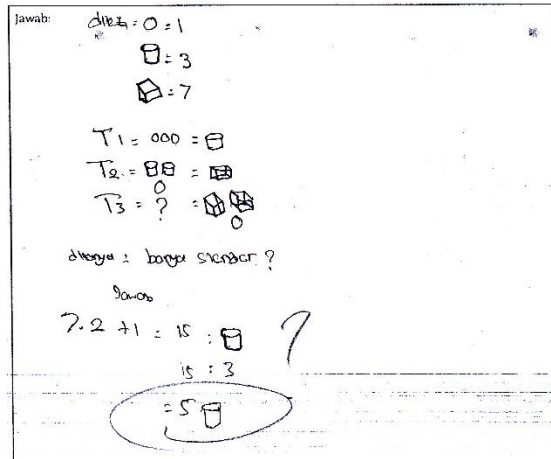 Jawab:
diket = 0 = 1
= 3
= 7
T1 = 000 =
T2 = =
0
T3 = ? =
0
ditanya = banya silinder ?
Jawab
7.2 + 1 = 15 :
15 : 3
= 5
?